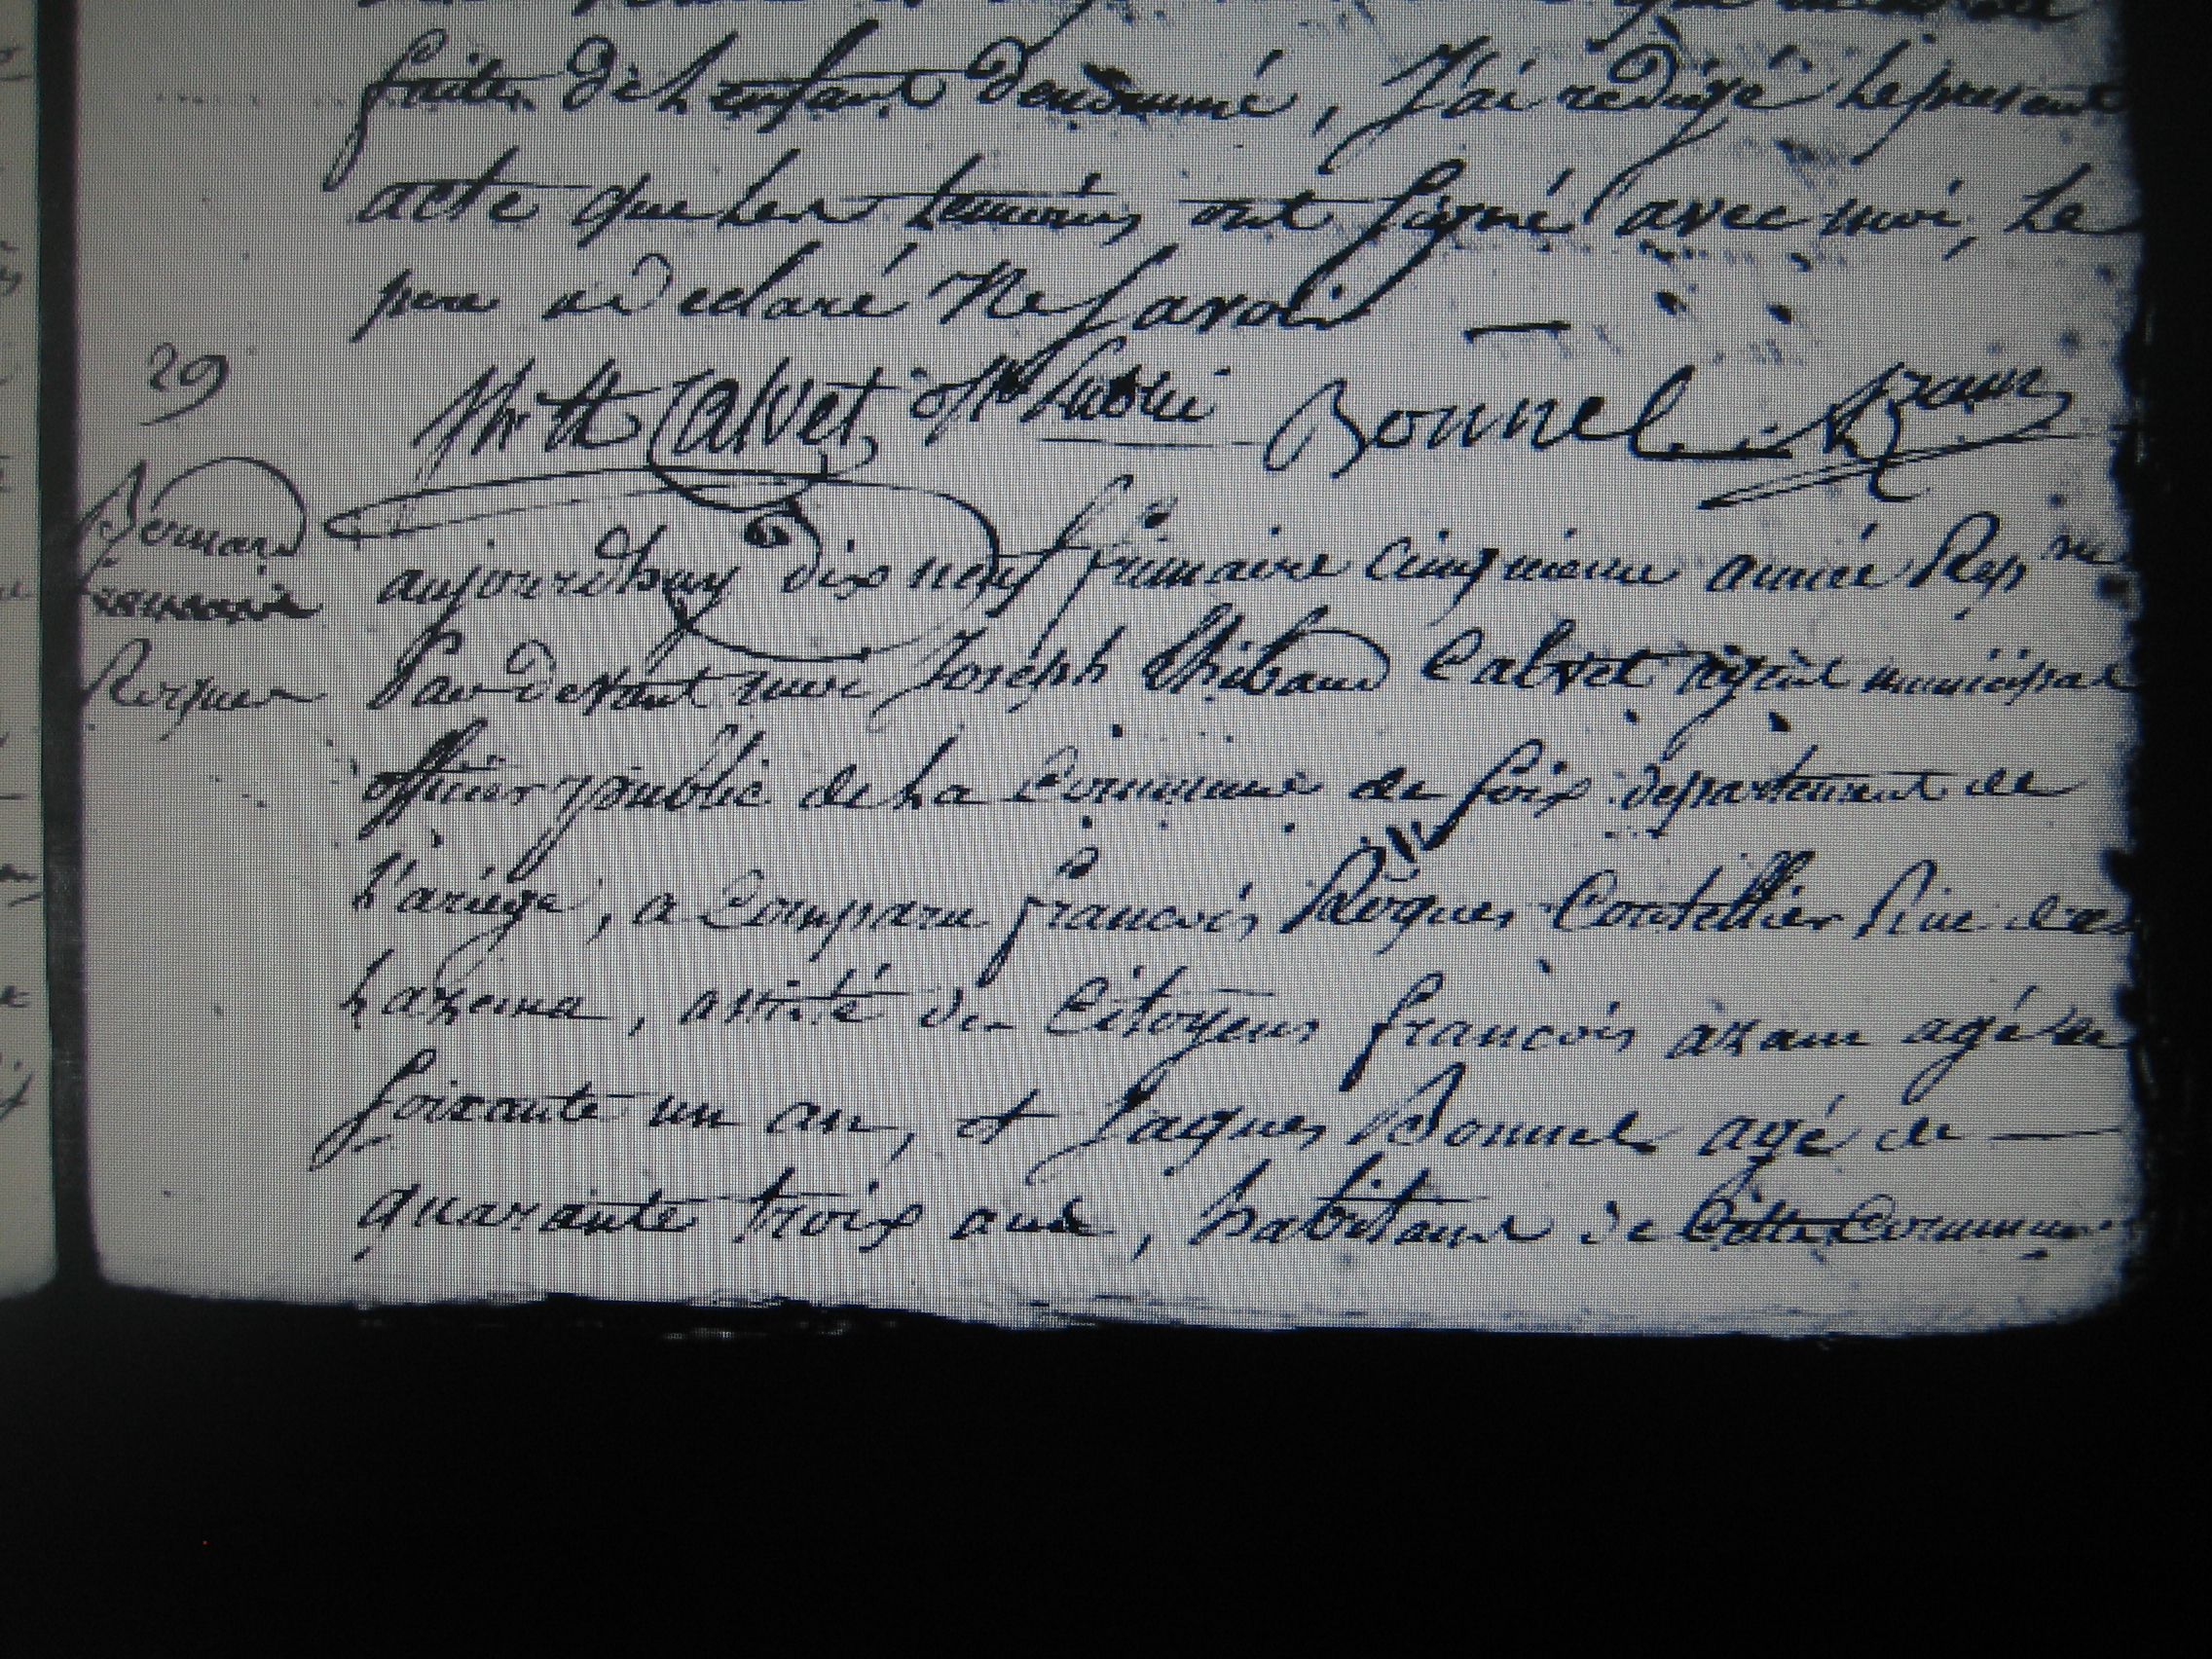 faite de L'enfant denommé, J'ai redigé Lepresent
acte que Les temoins ont signé avec moi, Le
pere a declaré Ne Savoir —
Calvet, off. Public Bonnel
29
Bernard
Roques
aujourd'huy dix neuf frimaire Cinquieme année Rep
Par devant moi Joseph Thibaud Calvet agent municipal
officier public de La Commune de foix departement de
L'ariege, a Comparu francois Roques Coutellier Rue de
Lazema, assisté des Citoyens francois azam agé de
soixante un an, et Jaques Bonnel agé de —
quarante troix ans, habitans de Cette Commune